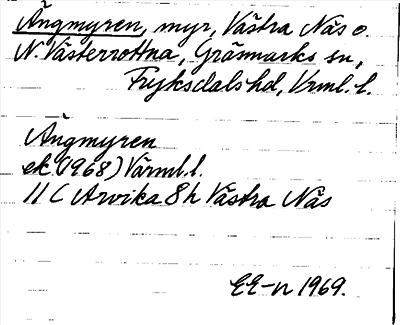 Ängmyren, myr, Västra Näs o.
N. Västerrottna, Gräsmarks sn,
Fryksdals hd, Vrml. l.
Ängmyren
ek. (1968) Värml. l.
11 C Arvika 8 h Västra Näs
EE-n 1969.